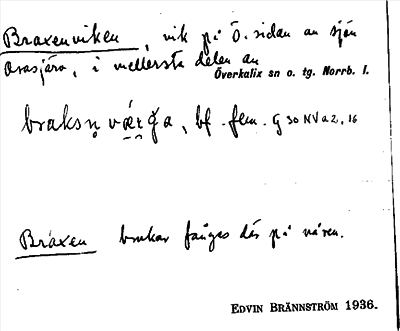 Braxenviken, vik på Ö. sidan av sjön
Orasjärv, i mellersta delen av
Överkalix sn o. tg. Norrb. l.
braksn værga, bf. fem. G 30 NV a 2, 16
Braxen brukar fångas där på våren.
EDVIN BRÄNNSTRÖM 1936.